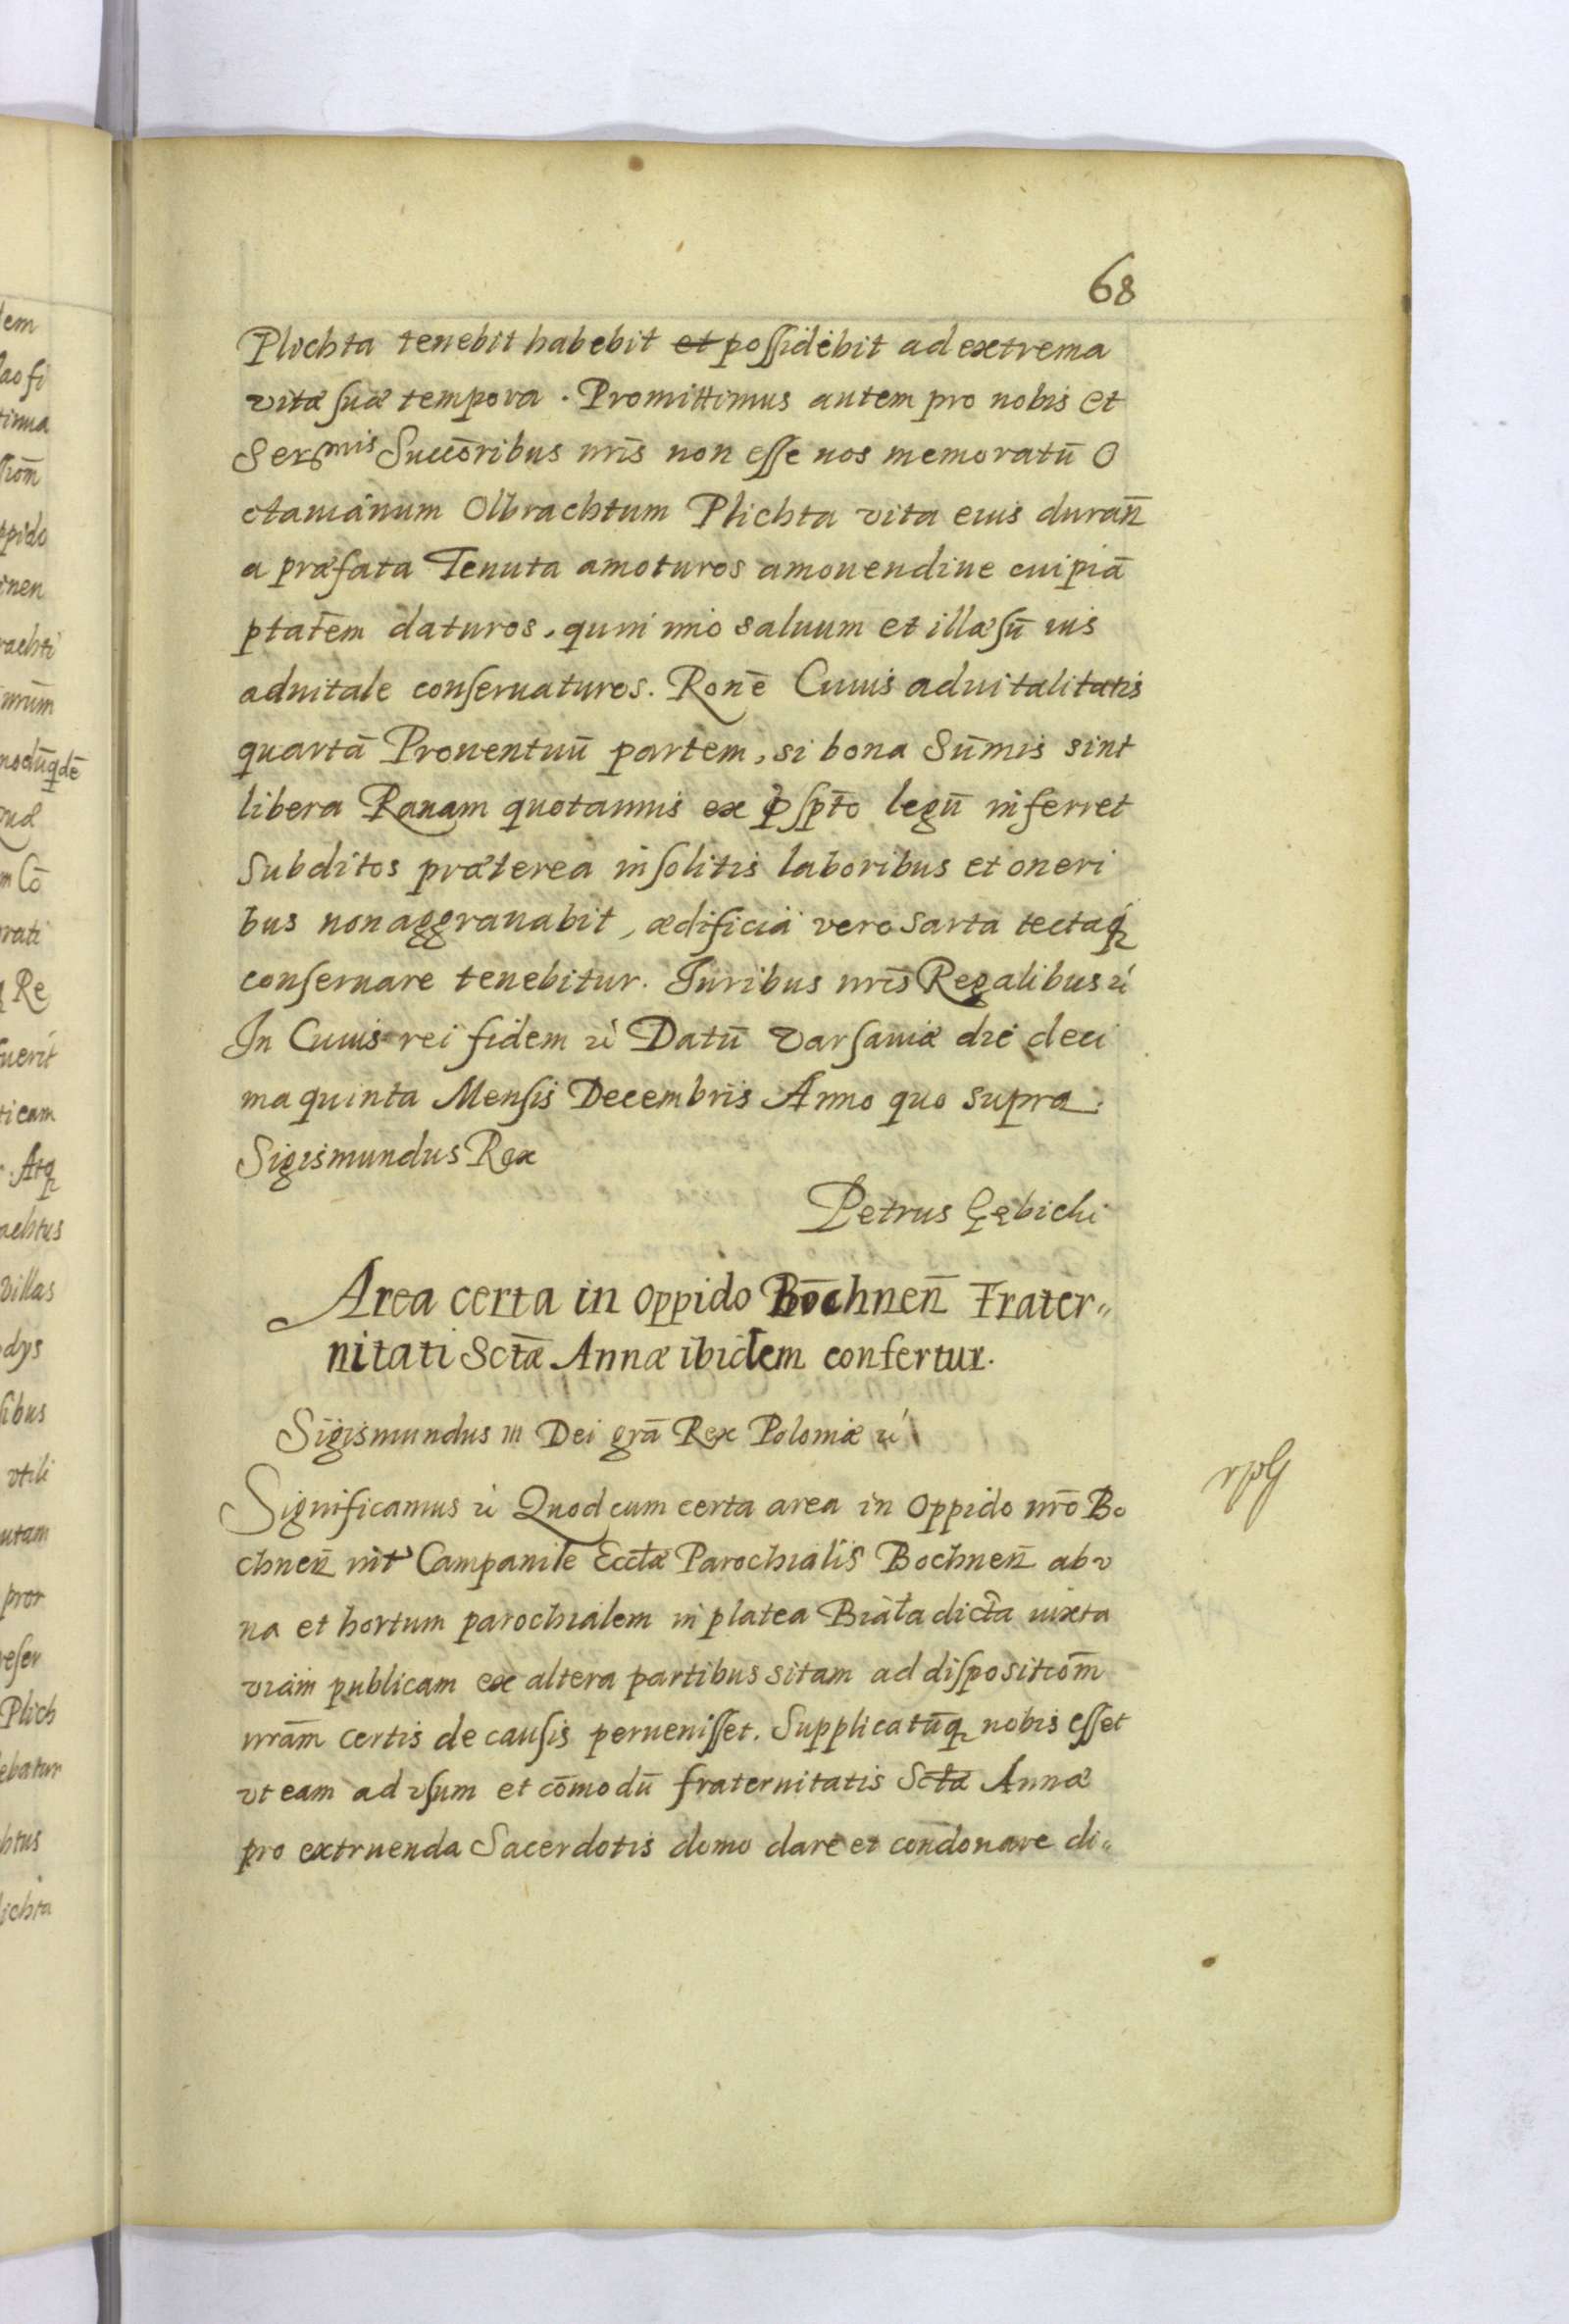 68
Plichta tenebit habebit et possidebit ad extrema
vitæ suæ tempora. Promittimus autem pro nobis et
Serꝫmis Succōribus nr̄is non esse nos memoratū O
ctauianum Olbrachtum Plichta vita eius durañ
a præfata Tenuta amoturos amouendiue cuipiā
ptatēm daturos, quin imo saluum et illæsū ius
aduitale conseruaturos. Ronē Cuius aduitalitatis
quartā Prouentuū partem, si bona Sūmis sint
libera Rauam quotannis ex p̱sptō legū inferret
Subditos præterea insolitis laboribus et oneri
bus non aggrauabit, ædificia vero sarta tectaq;
conseruare tenebitur. Iuribus nr̄is Regalibus ꝛc
In Cuius rei fidem ꝛc Datū Varsauiæ die deci
ma quinta Mensis Decembris Anno quo supra.
Sigismundus Rex
Petrus Gębichi
Area certa in oppido Bōchneñ Frater„
nitati Sctǣ Annæ ibidem confertur.
Sigismundus III Dei grā Rex Poloniæ ꝛc
Significamus ꝛc Quod cum certa area in oppido nrō Bo
chneñ int̕ Campanile Ecctǣ Parochialis Bochneñ ab v
na et hortum parochialem in platea Biała dicta iuxta
viam publicam ex altera partibus sitam ad dispositiōm
nrām certis de causis peruenisset. Supplicatūq; nobis esset
vt eam ad vsum et cōmodū fraternitatis Sctǣ Annæ
pro extruenda Sacerdotis domo dare et condonare di„